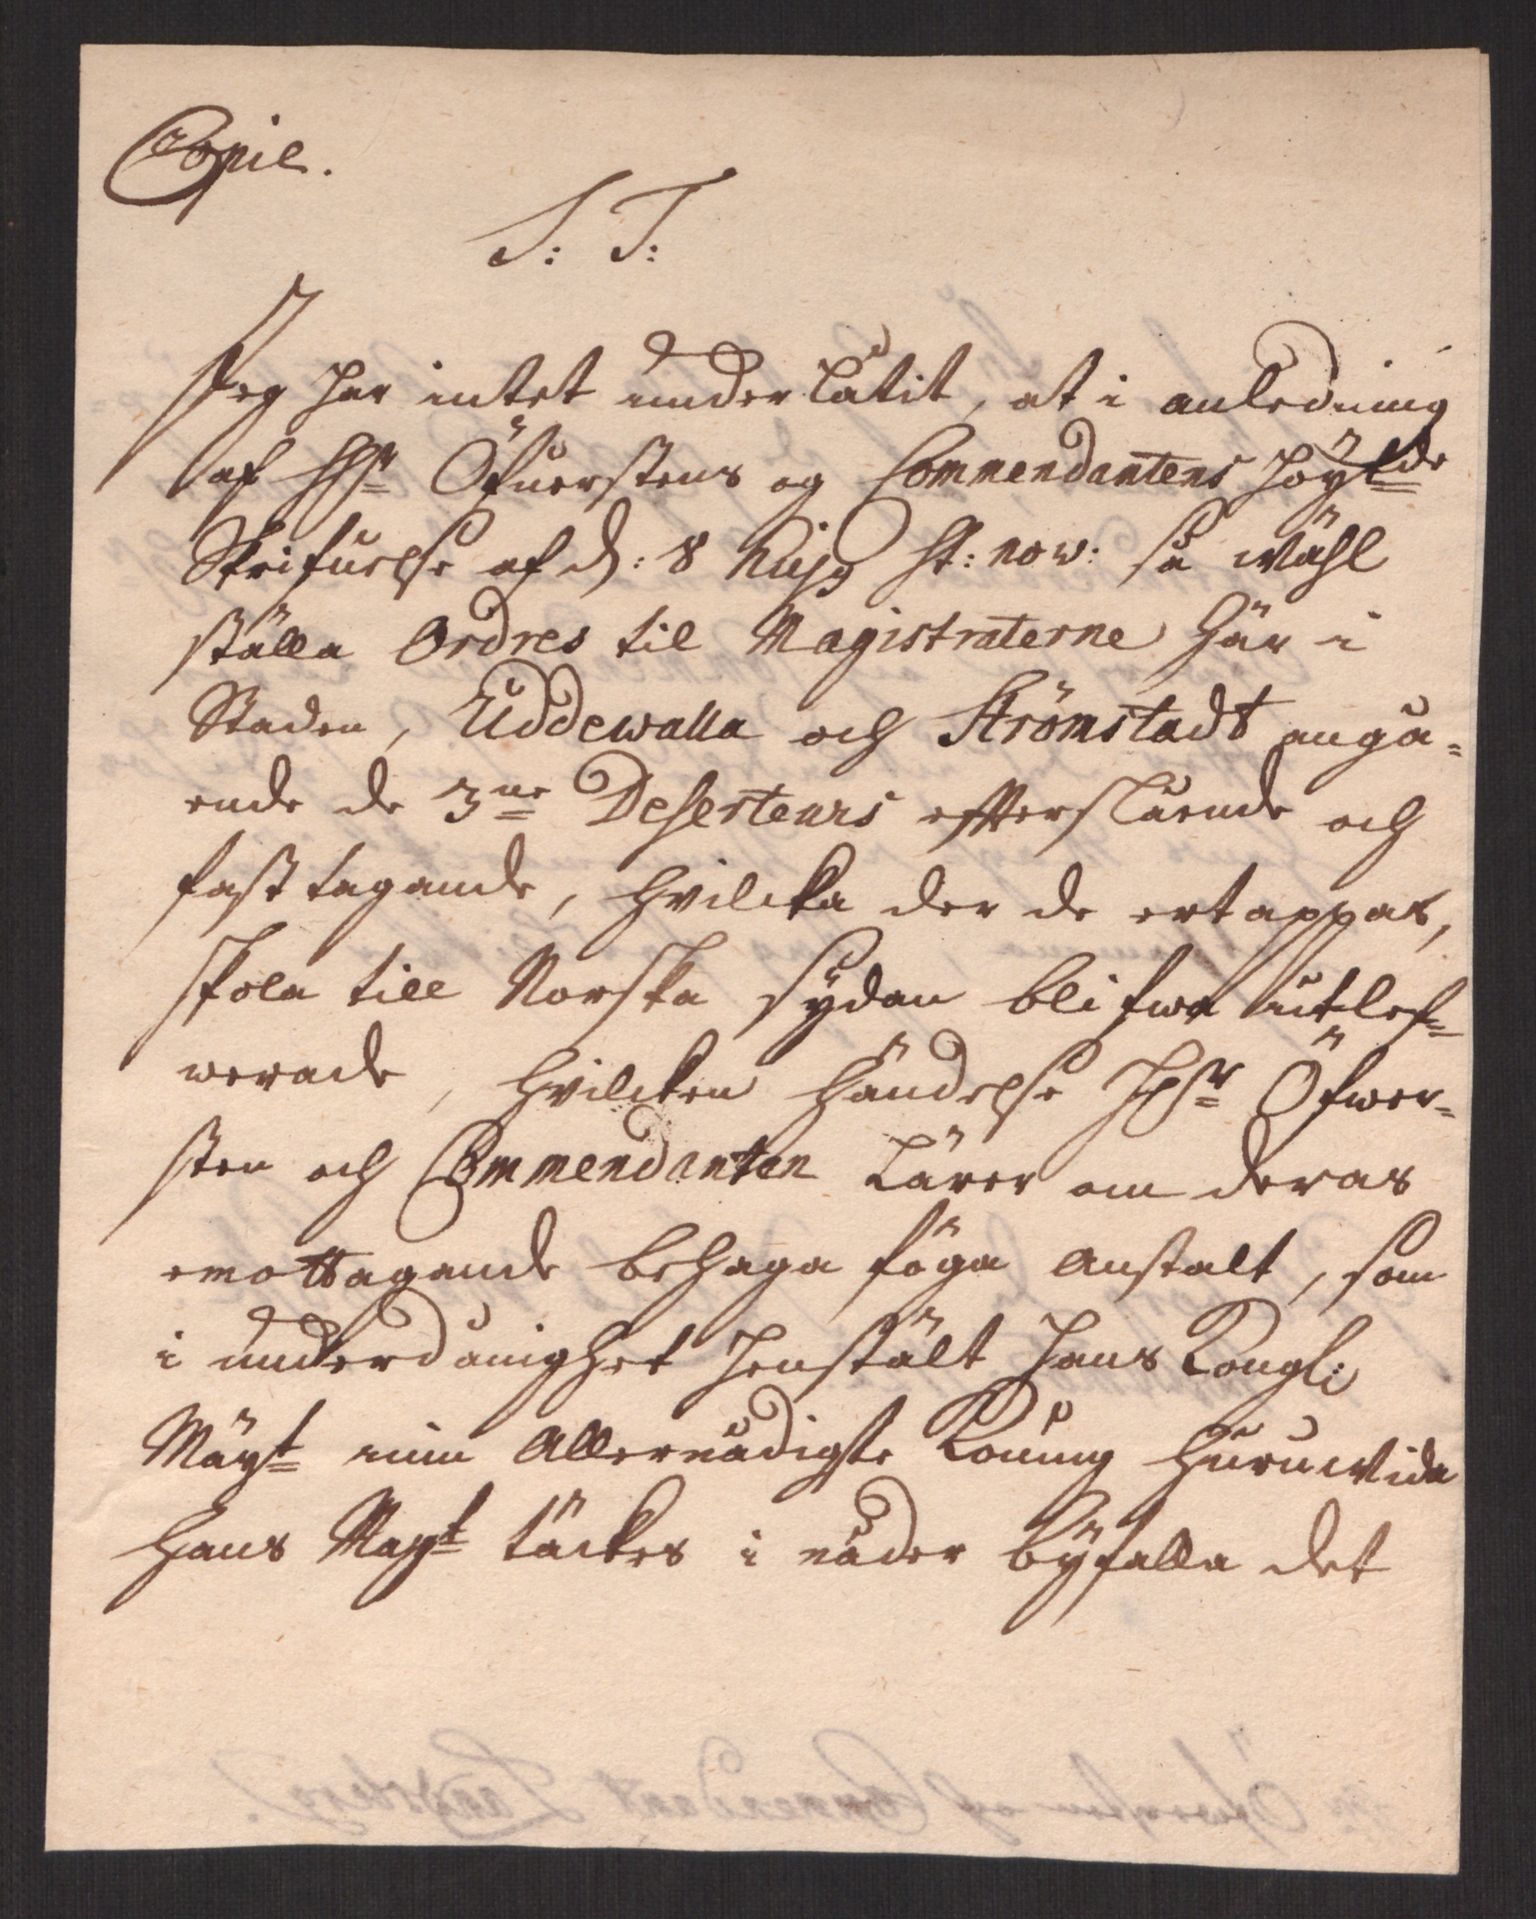 Copie.
S: T:
Jeg har intet underlåtit, at i anledning
af Hr Öfuerstens og Commendantens höÿtde
Skrifuelse af d: 8 hujg St: nov: så wähl
ställa Ordres til Magistraterne här i
Staden, Uddewalla och Strömstadt angå=
ende de 3ne Deserteurs effterslående och
fasttagande, hvilcka der de ertappas,
skola till Norska sÿdan blifwa utlef=
werade, hvilcken händelse Hr Öfwer=
sten och Commendanten lärer om deras
emottagande behaga föga Anstalt, som
i underdånighet henstält Hans Kongl:
Mäyt min Allernådigste Konung huruwida
Hans Mayt täckes i nåder bÿfalla det